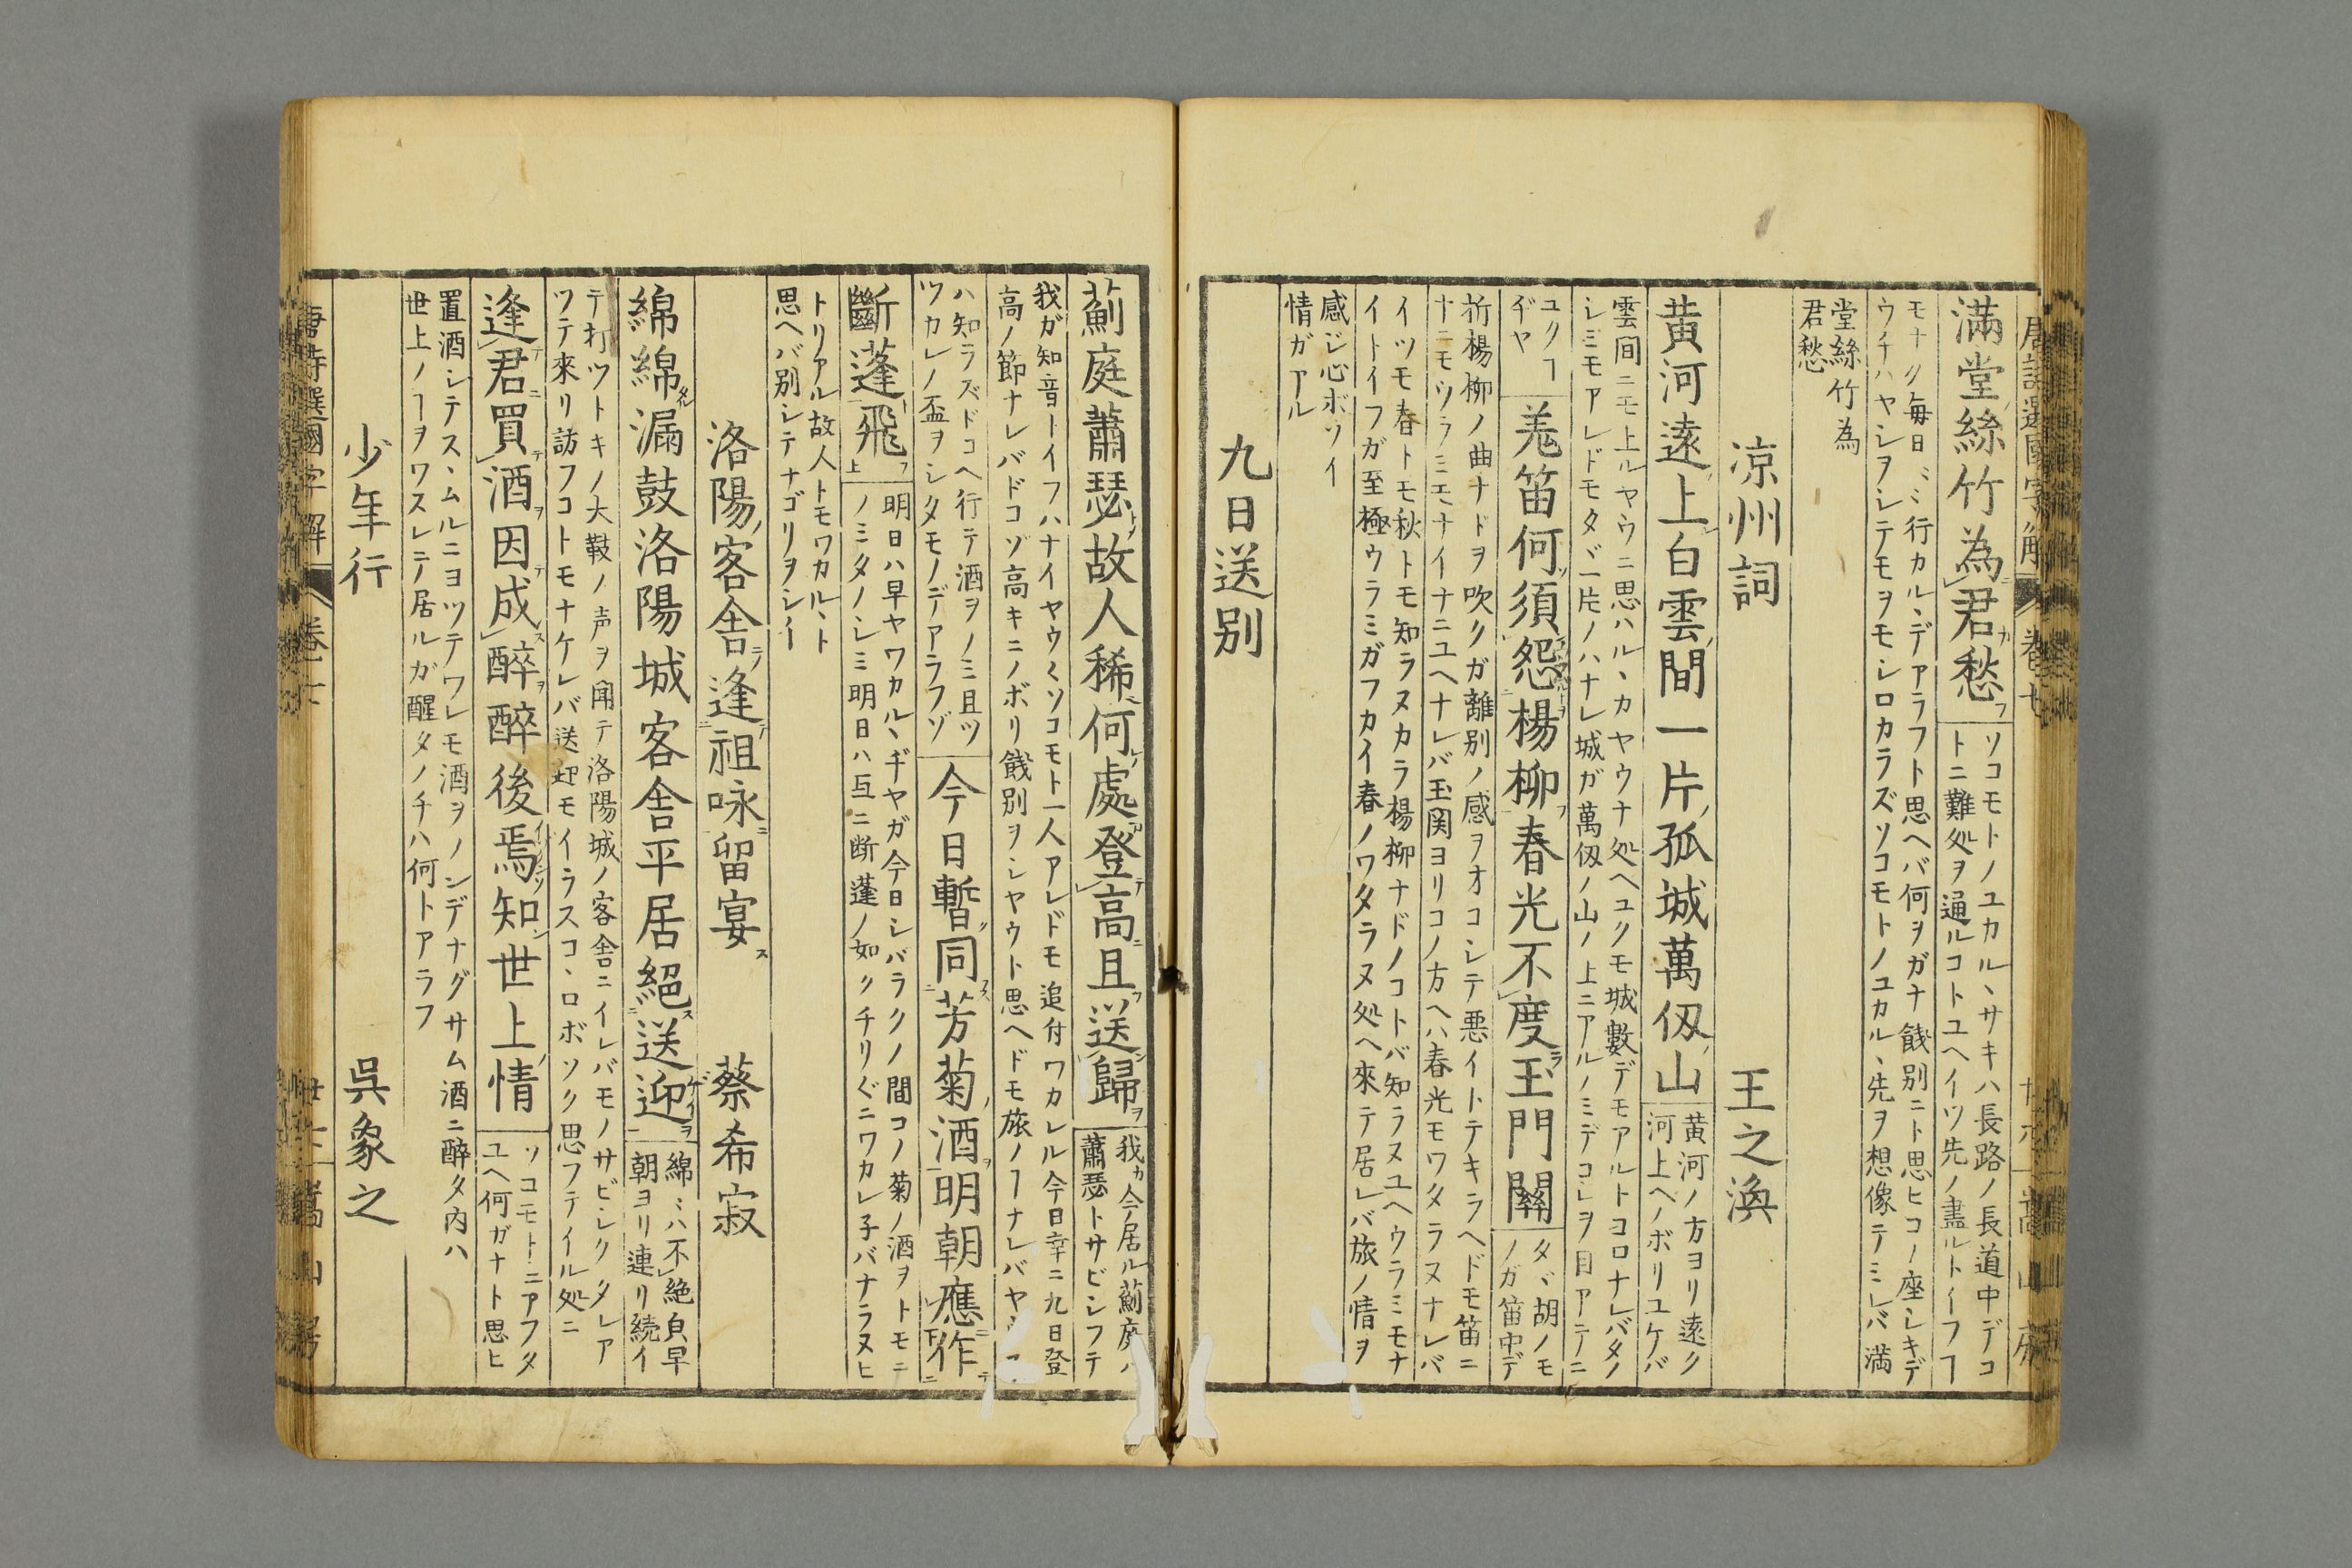 滿堂絲竹為君愁
ソコモトノユカルヽサキハ長路ノ長道中デコ
トニ難処ヲ通ルコトユヘイツ先ノ盡ルトイフヿ
モナク毎日〻行カルヽデアラフト思ヘバ何ヲガナ餞別ニト思ヒコノ座シキデ
ウチハヤシヲシテモヲモシロカラズソコモトノユカルヽ先ヲ想像テミレバ満
堂絲竹為
君愁
凉州詞
王之渙
黄河遠上白雲間一片孤城萬仭山
黄河ノ方ヨリ遠ク
河上ヘノボリユケバ
雲間ニモ上ルヤウニ思ハルヽカヤウナ処ヘユクモ城數デモアルトヨロナレバタノ
シミモアレドモタヾ一片ノハナレ城ガ萬仭ノ山ノ上ニアルノミデコレヲ目アテニ
ユクヿ
ヂヤ
羗笛何須怨楊柳春光不度玉門關
タヾ胡ノモ
ノガ笛中デ
折楊柳ノ曲ナドヲ吹クガ離別ノ感ヲオコシテ悪イトテキラヘドモ笛ニ
ナニモツラミモナイナニユヘナレバ玉関ヨリコノ方ヘハ春光モワタラヌナレバ
イツモ春トモ秋トモ知ラヌカラ楊柳ナドノコトバ知ラヌユヘウラミモナ
イトイフガ至極ウラミガフカイ春ノワタラヌ処ヘ來テ居レバ旅ノ情ヲ
感ジ心ボソイ
情ガアル
九日送别
薊庭蕭瑟故人稀何處登高且送歸
我カ今居ル薊庭ハ
蕭瑟トサビシフテ
我ガ知音トイフハナイヤウ〱ソコモト一人アレドモ追付ワカレル今日幸ニ九日登
高ノ節ナレバドコゾ高キニノボリ餞别ヲシヤウト思ヘドモ旅ノヿナレバ
ハ知ラズドコヘ行テ酒ヲノミ且ツ
ツカレノ盃ヲシタモノデアラフゾ
今日暫同芳菊酒明朝應作
斷蓬飛
明日ハ早ヤワカルヽヂヤガ今日シバラクノ間コノ菊ノ酒ヲトモニ
ノミタノシミ明日ハ互ニ断蓬ノ如クチリ〲ニワカレ子バナラヌヒ
トリアル故人トモワカルヽト
思ヘバ别シテナゴリヲシイ
洛陽客舎逢祖咏留宴
蔡希寂
綿綿漏鼓洛陽城客舎平居絕送迎
綿〻ハ不絶貞早
朝ヨリ連リ続イ
テ打ツトキノ大鞁ノ声ヲ聞テ洛陽城ノ客舎ニイレバモノサビシクタレア
ツテ來リ訪フコトモナケレバ送迎モイラスコヽロボソク思フテイル処ニ
逢君買酒因成醉醉後焉知世上情
ソコモトニアフタ
ユヘ何ガナト思ヒ
置酒シテスヽムルニヨツテワレモ酒ヲノンデナグサム酒ニ醉タ内ハ
世上ノヿヲワスレテ居ルガ醒タノチハ何トアラフ
少年行
呉象之
唐詩選國字解